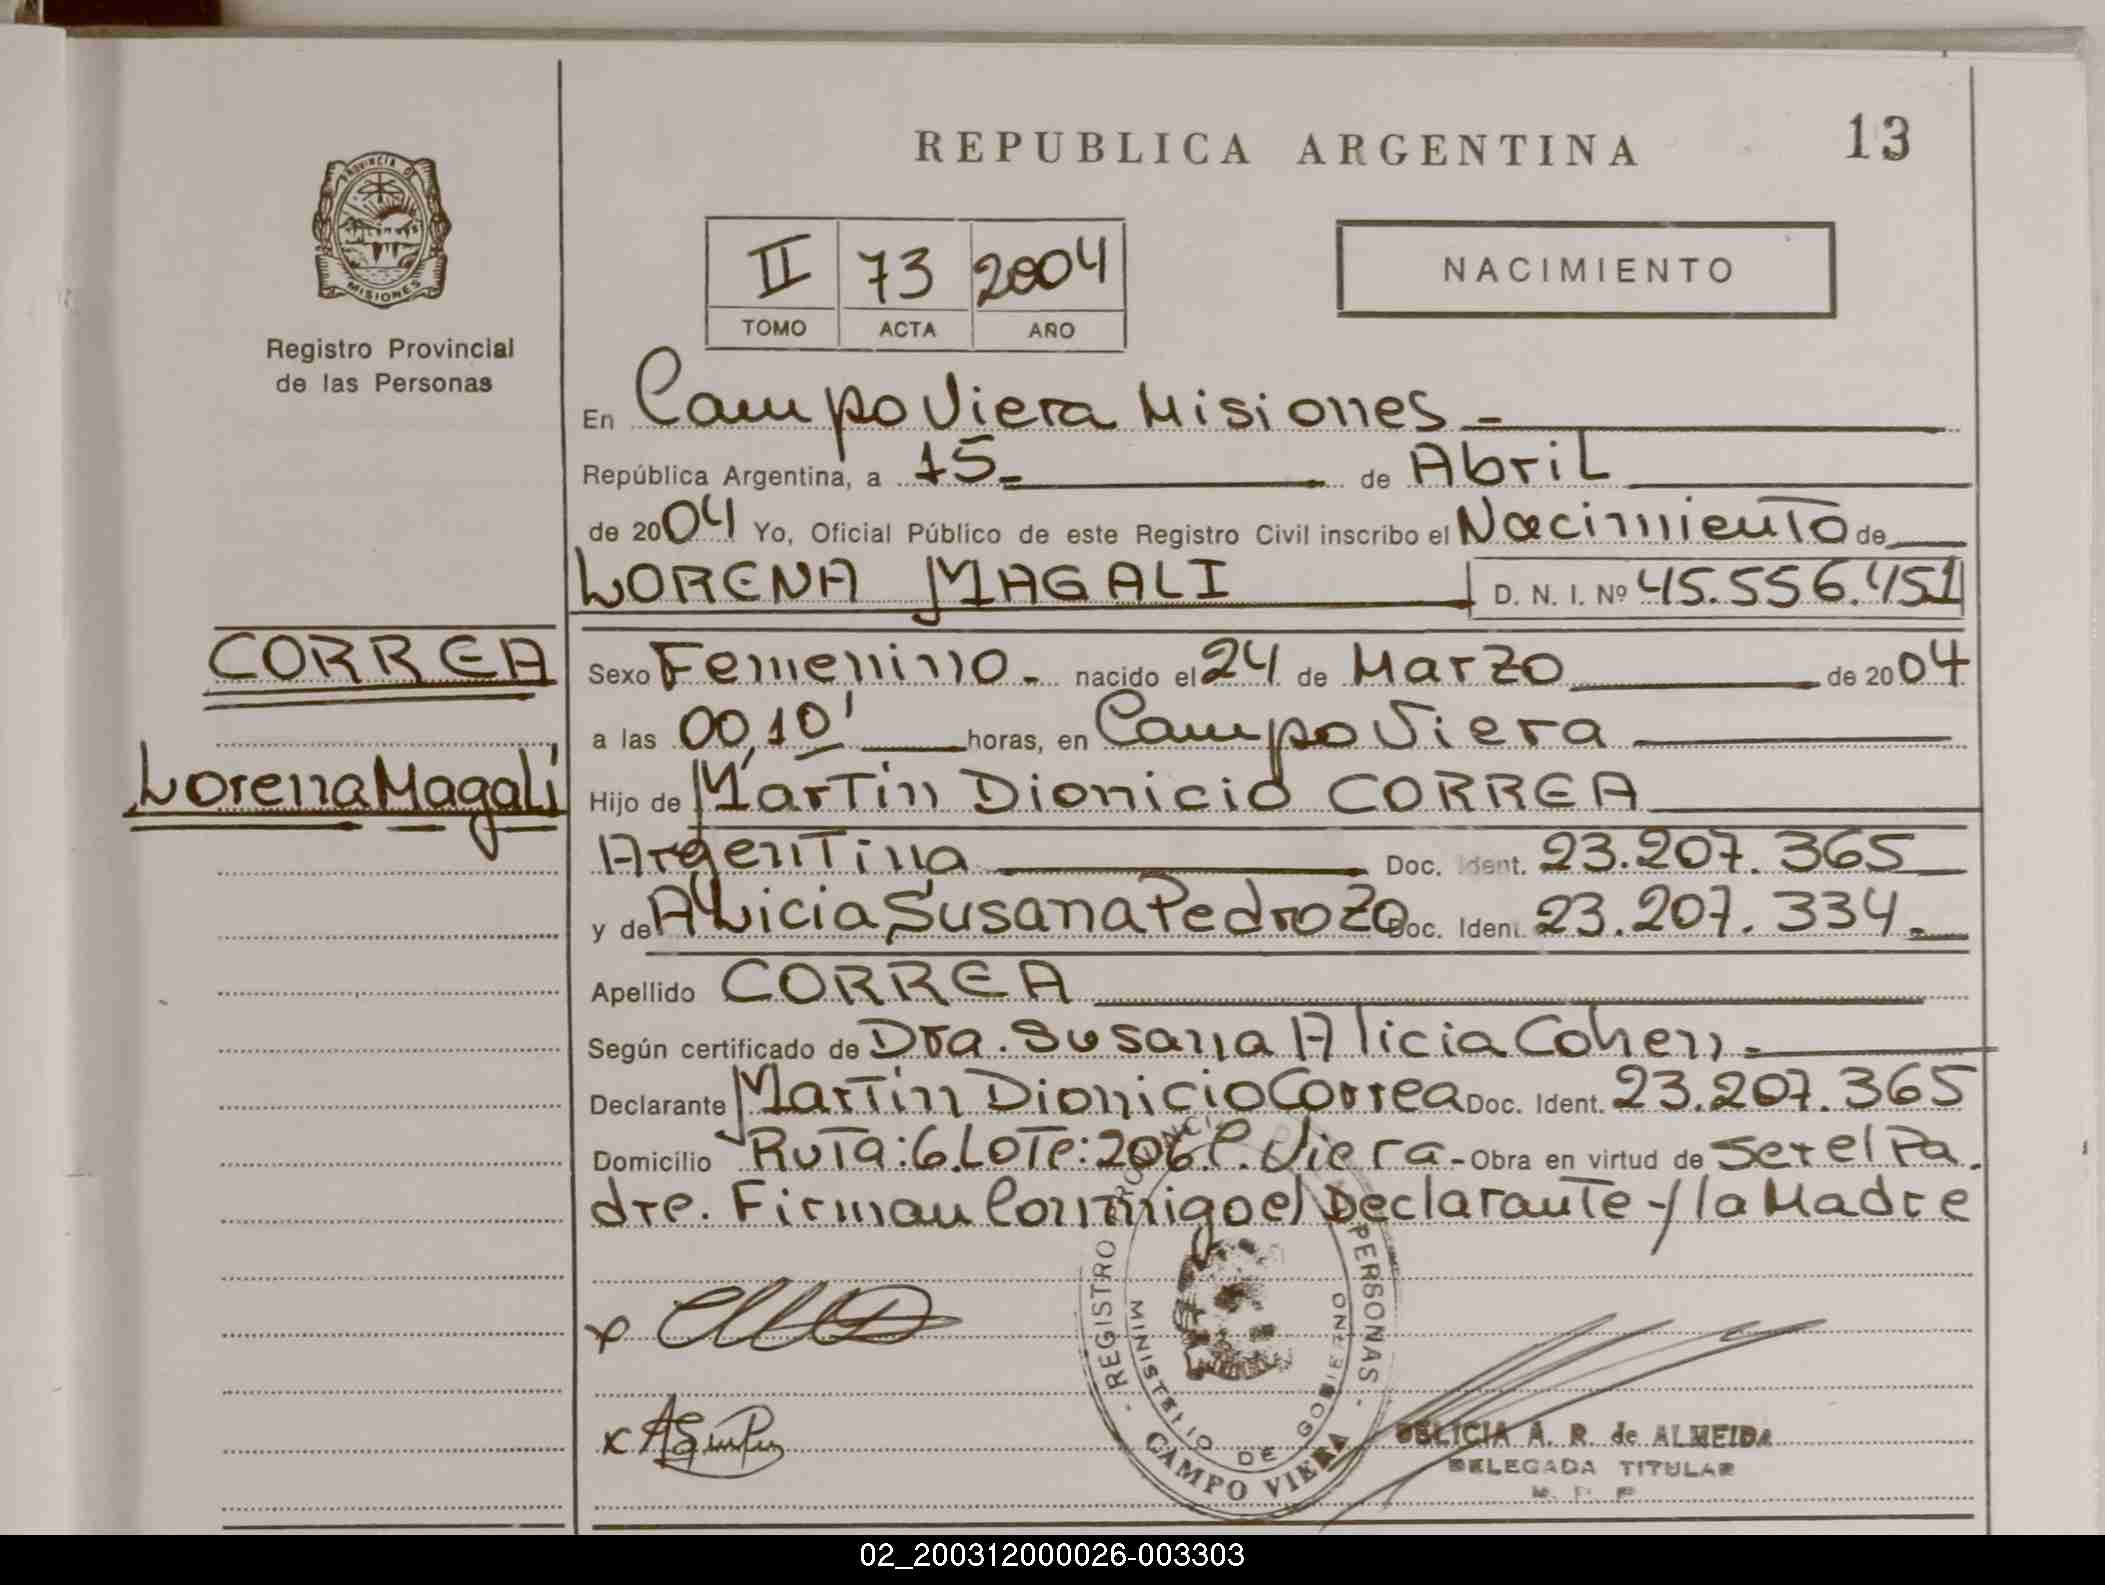 REPUBLICA ARGENTINA
13
PROVINCIA DE
MISIONES
Registro Provincial
de las Personas
II 73 2004
TOMO ACTA AÑO
NACIMIENTO
En Campo Viera Misiones -
República Argentina, a 15 de Abril
de 2004 Yo, Oficial Público de este Registro Civil inscribo el Nacimiento de
LORENA MAGALI D. N. I. Nº 45.556.451
CORREA
Lorena Magali
Sexo Femenino - nacido el 24 de Marzo de 2004
a las 00,10' horas, en Campo Viera
Hijo de Martín Dionicio CORREA
Argentina Doc. Ident. 23.207.365
y de Alicia Susana Pedrozo Doc. Ident. 23.207.334.
Apellido CORREA
Según certificado de Dra. Susana Alicia Cohen -
Declarante Martín Dionicio Correa Doc. Ident. 23.207.365
Domicilio Ruta: 6. Lote: 206 C. Viera - Obra en virtud de Ser el Pa
dre. Firman Conmigo el Declarante y la Madre
REGISTRO PROVINCIAL DE PERSONAS
MINISTERIO DE GOBIERNO
CAMPO VIERA
DELICIA A. R. de ALMEIDA
DELEGADA TITULAR
02_200312000026-003303